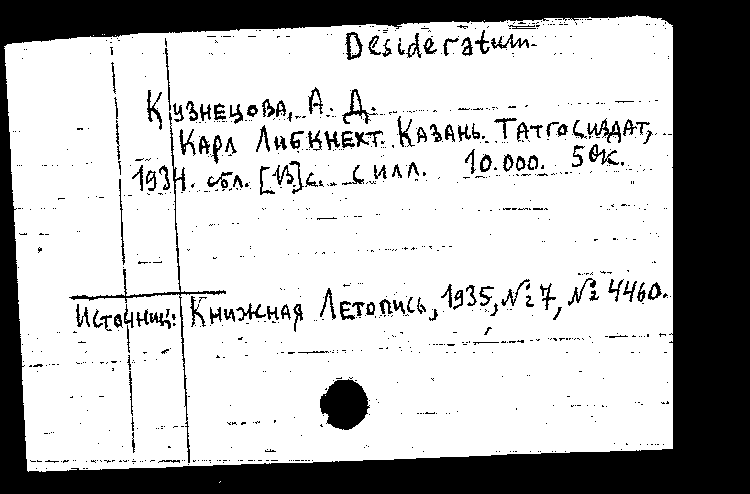 Desideratum.
Кузнецова, А. Д.
Карл Либкнехт. Казань. Татгосиздат,
1934. обл. [13]с. с илл. 10.000. 50к.
Источник: Книжная Летопись, 1935, № 7, № 4460.